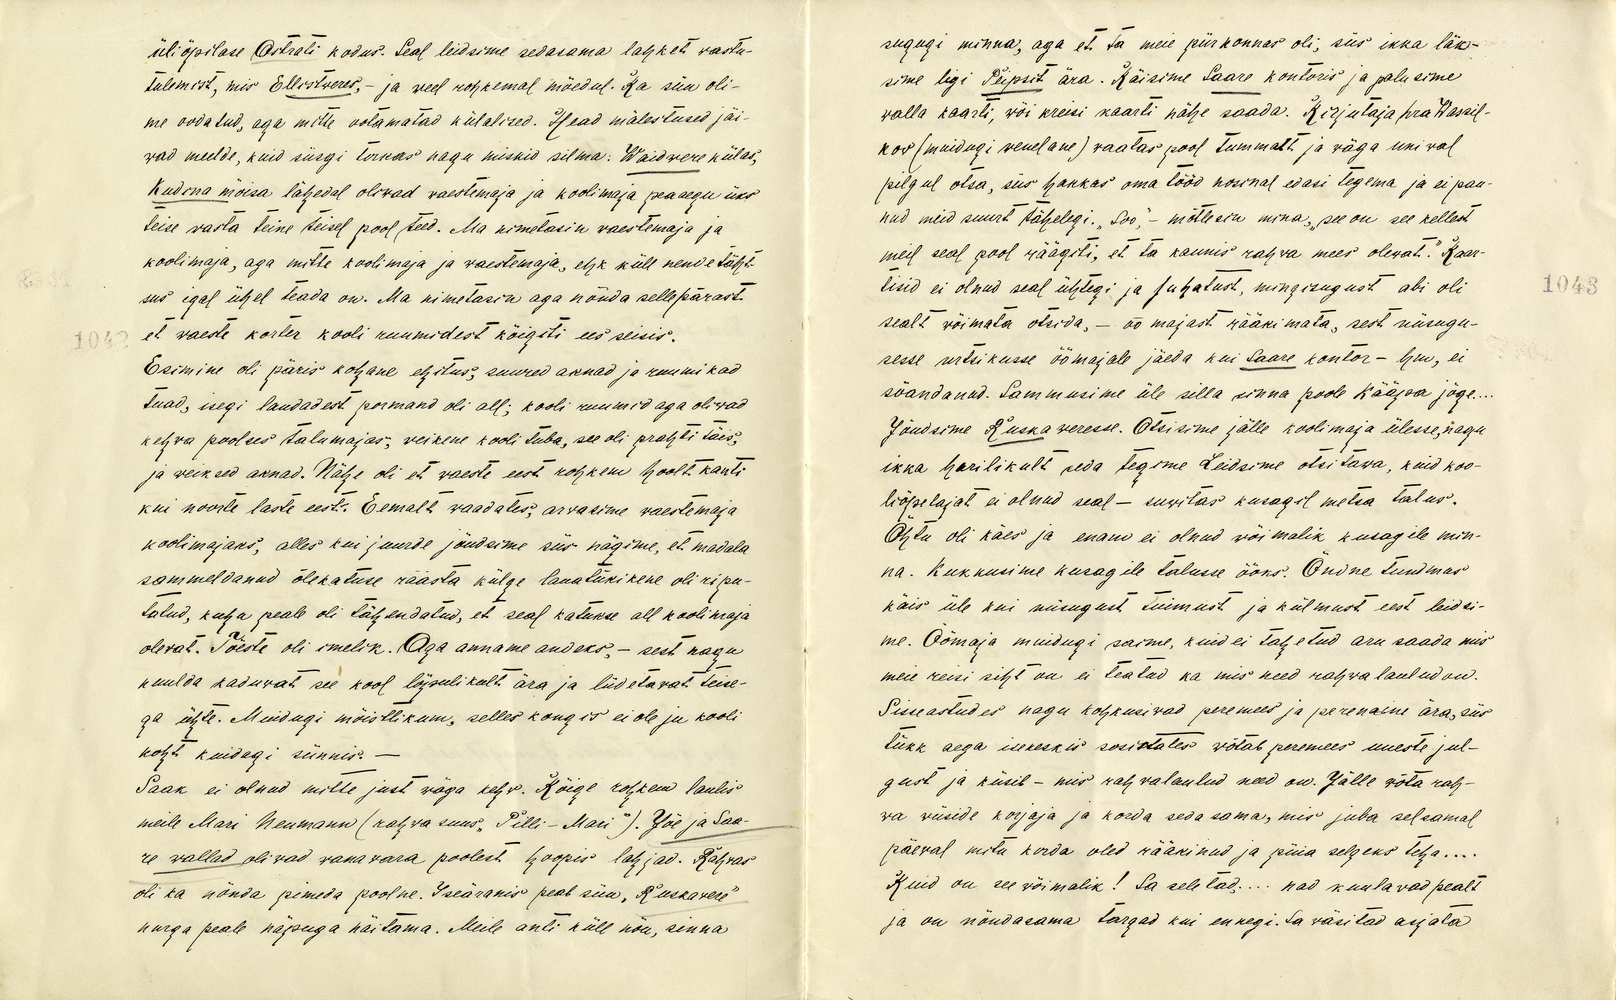 üliõpilase Ostrati kodus. Seal leidsime sedasama lahket vastu-
tulemist, mis Ellistveres, – ja veel rohkemal mõedul. Ka siin oli-
me oodatud, aga mitte ootamatad külalised. Head mälestused jäi-
vad meelde, kuid siisgi torkas nagu miskid silma: Waidvere külas,
Kudina mõisa lähedal olivad vaestemaja ja koolimaja peaaegu üks
teise vasta teine teisel pool teed. Ma nimetasin vaestemaja ja
koolimaja, aga mitte koolimaja ja vaestemaja, ehk küll nende täht-
sus igal ühel teada on. Ma nimetasin aga nõnda sellepärast
et vaeste korter kooli ruumidest kõigiti ees seisis.
1042
Esimine oli päris kohane ehitus, suured aknad ja ruumikad
tuad, isegi laudadest pormand oli all; kooli ruumid aga olivad
kehva poolses talumajas, veikene kooli tuba, see oli prahti täis,
ja veiksed aknad. Nähe oli et vaeste eest rohkem hoolt kanti
kui noorte laste eest. Eemalt vaadates, arvasime vaestemaja
koolimajaks, alles kui juurde jõudsime siis nägime, et madala
sammeldanud õlekatuse räästa külge lauatükikene oli ripu-
tatud, kuha peale oli tähendatud, et seal katukse all koolimaja
olevat. Tõeste oli imelik. Aga anname andeks, – sest nagu
kuulda kaduvat see kool lõpulikult ära ja liidetavat teise-
ga ühte. Muidugi mõistlikum, selles kongis ei ole ju kooli
koht kuidagi sünnis. –
Saak ei olnud mitte just väga kehv. Kõige rohkem laulis
meile Mari Neumann (rahva suus „Pilli-Mari”). Jõe ja Saa-
re vallad olivad vanavara poolest hoopis lahjad. Rahvas
oli ka nõnda pimeda poolne. Iseäranis peab siin „Ruskavere”
nurga peale näpuga näitama. Meile anti küll nõu, sinna
sugugi minna, aga et ta meie piirkonnas oli, siis ikka läk-
sime ligi Peipsit ära. Käisime Saare kontoris ja palusime
valla kaarti, või kreisi kaarti nähe saada. Kirjutaja hra Wassil-
kov (muidugi venelane) vaatas pool tummalt ja väga unival
pilgul otsa, siis hakkas oma tööd nosinal edasi tegema ja ei pan-
nud meid suurt tähelegi. „Soo”, – mõtlesin mina, „see on see kellest
meil seal pool räägiti, et ta kaunis rahva mees olevat.” Kaar-
tisid ei olnud seal ühtegi ja juhatust, mingisugust abi oli
1043
sealt võimata otsida, – öö majast rääkimata, sest niisugu-
sesse urtsikusse öömajale jäeda kui Saare kontor – hm, ei
söandanud. Sammusime üle silla sinna poole Kääpa jõge....
Jõudsime Ruskaveresse. Otsisime jälle koolimaja ülesse, nagu
ikka harilikult seda tegime. Leidsime otsitava, kuid koo-
liõpetajat ei olnud seal – suvitas kusagil metsa talus.
Õhtu oli käes ja enam ei olnud võimalik kusagile min-
na. Kukkusime kusagile talusse ööks. Õudne tundmas
käis üle kui niisugust tuimust ja külmust eest leidsi-
me. Öömaja muidugi saime, kuid ei tahetud aru saada mis
meie reisi siht on ei teatud ka mis need rahvalaulud on.
Sisseastudes nagu kohkusivad peremees ja perenaine ära, siis
tükk aega isekeskis sositates võtab peremees uueste jul-
gust ja küsib – mis rahvalaulud need on. Jälle võta rah-
va viiside korjaja ja korda sedasama, mis juba selsamal
päeval mitu korda oled rääkinud ja püia selgeks teha....
Kuid on see võimalik! Sa seletad.... nad kuulavad pealt
ja on nõndasama targad kui ennegi. Sa väsitad asjata